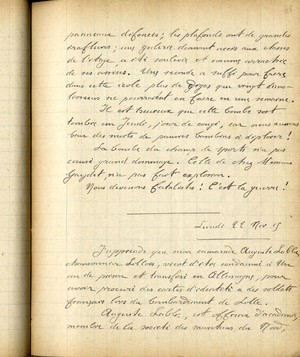 panneaux défoncés ; les plafonds ont de grandes
éraflures ; une galerie donnant accès aux classes
de l'étage a été soulevée et comme arrachée
de ses assises. Une seconde a suffi pour faire
dans cette école plus de dégâts que vingt
ne pourraient en faire en une semaine.
Il est heureux que cette bombe soit
tombée un Jeudi, jour de congé, car nous aurions
eu des morts de pauvres bambins à déplorer !
La bombe du champ de n'a pas
causé grand dommage. Celle de chez Monsieur
n'a pas fait explosion.
Nous devenons fatalistes ! C'est la guerre !
Lundi 22 Nov. 15
J'apprends que mon camarade Auguste Labbe,
chansonnier Lillois, vient d'être condamné à un
an de prison et transféré en Allemagne, pour
avoir procuré des cartes d'identité à des soldats
français lors du bombardement de Lille.
Auguste Labbe, est officier d'académie,
membre de la société des du Nord,